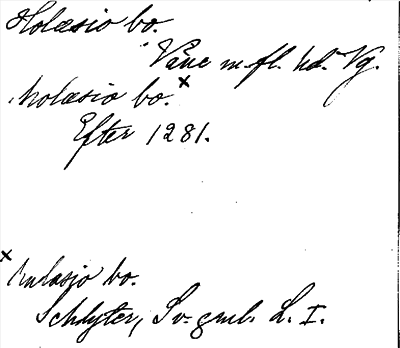 Holæsio bo.
Väne m. fl. hd. Vg.
Molæsio bo. x
Efter 1281.
x
bo.
Schlyter, Sv. gml. L. I.